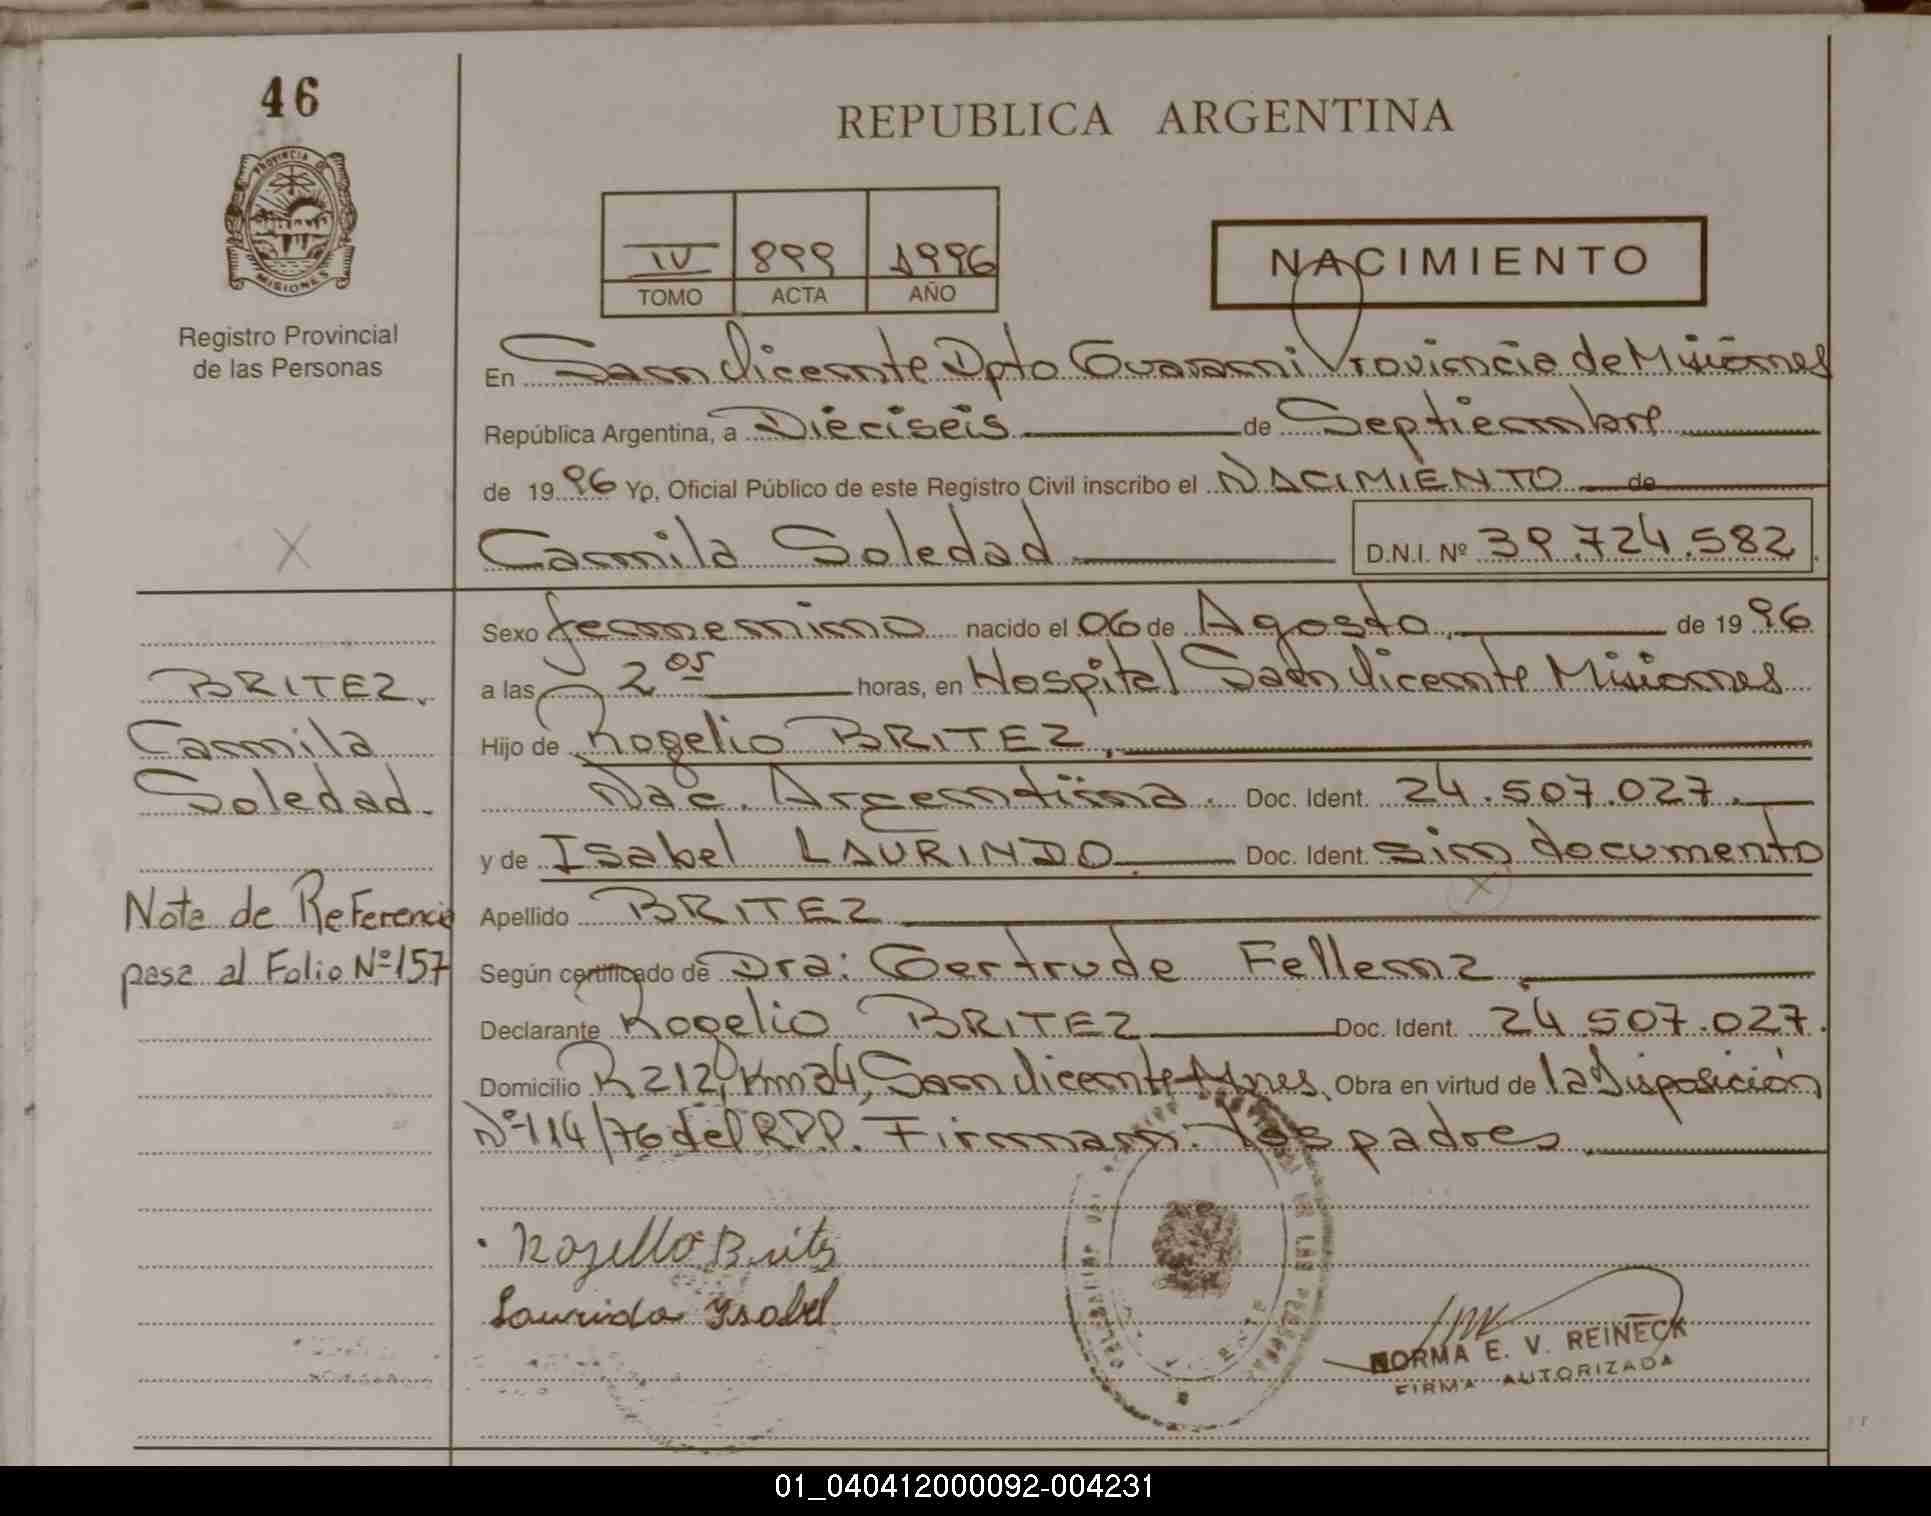 46
PROVINCIA DE
MISIONES
Registro Provincial
de las Personas
REPUBLICA ARGENTINA
IV 899 1996
TOMO ACTA AÑO
NACIMIENTO
En San Vicente Dpto Guarani Provincia de Misiones
República Argentina, a Dieciseis de Septiembre
de 1996 Yo, Oficial Público de este Registro Civil inscribo el NACIMIENTO de
Camila Soledad D.N.I. Nº 39.724.582
Sexo femenino nacido el 06 de Agosto, de 1996
a las 2 05 horas, en Hospital San Vicente Misiones
Hijo de Rogelio BRITEZ,
Nac. Argentina. Doc. Ident. 24.507.027.
y de Isabel LAURINDO. Doc. Ident. sin documento
Apellido BRITEZ
Según certificado de Dra: Gertrude Fellenz
Declarante Rogelio BRITEZ Doc. Ident. 24.507.027.
Domicilio R 212, Km 34, San Vicente Mnes. Obra en virtud de la Disposición
Nº 114/76 del R.P.P. Firman: los padres
BRITEZ,
Camila
Soledad.
Nota de Referencia
pasa al Folio Nº 157
Rogelio Britz
Laurida Ysabel
NORMA E. V. REINECK
FIRMA AUTORIZADA
01_040412000092-004231